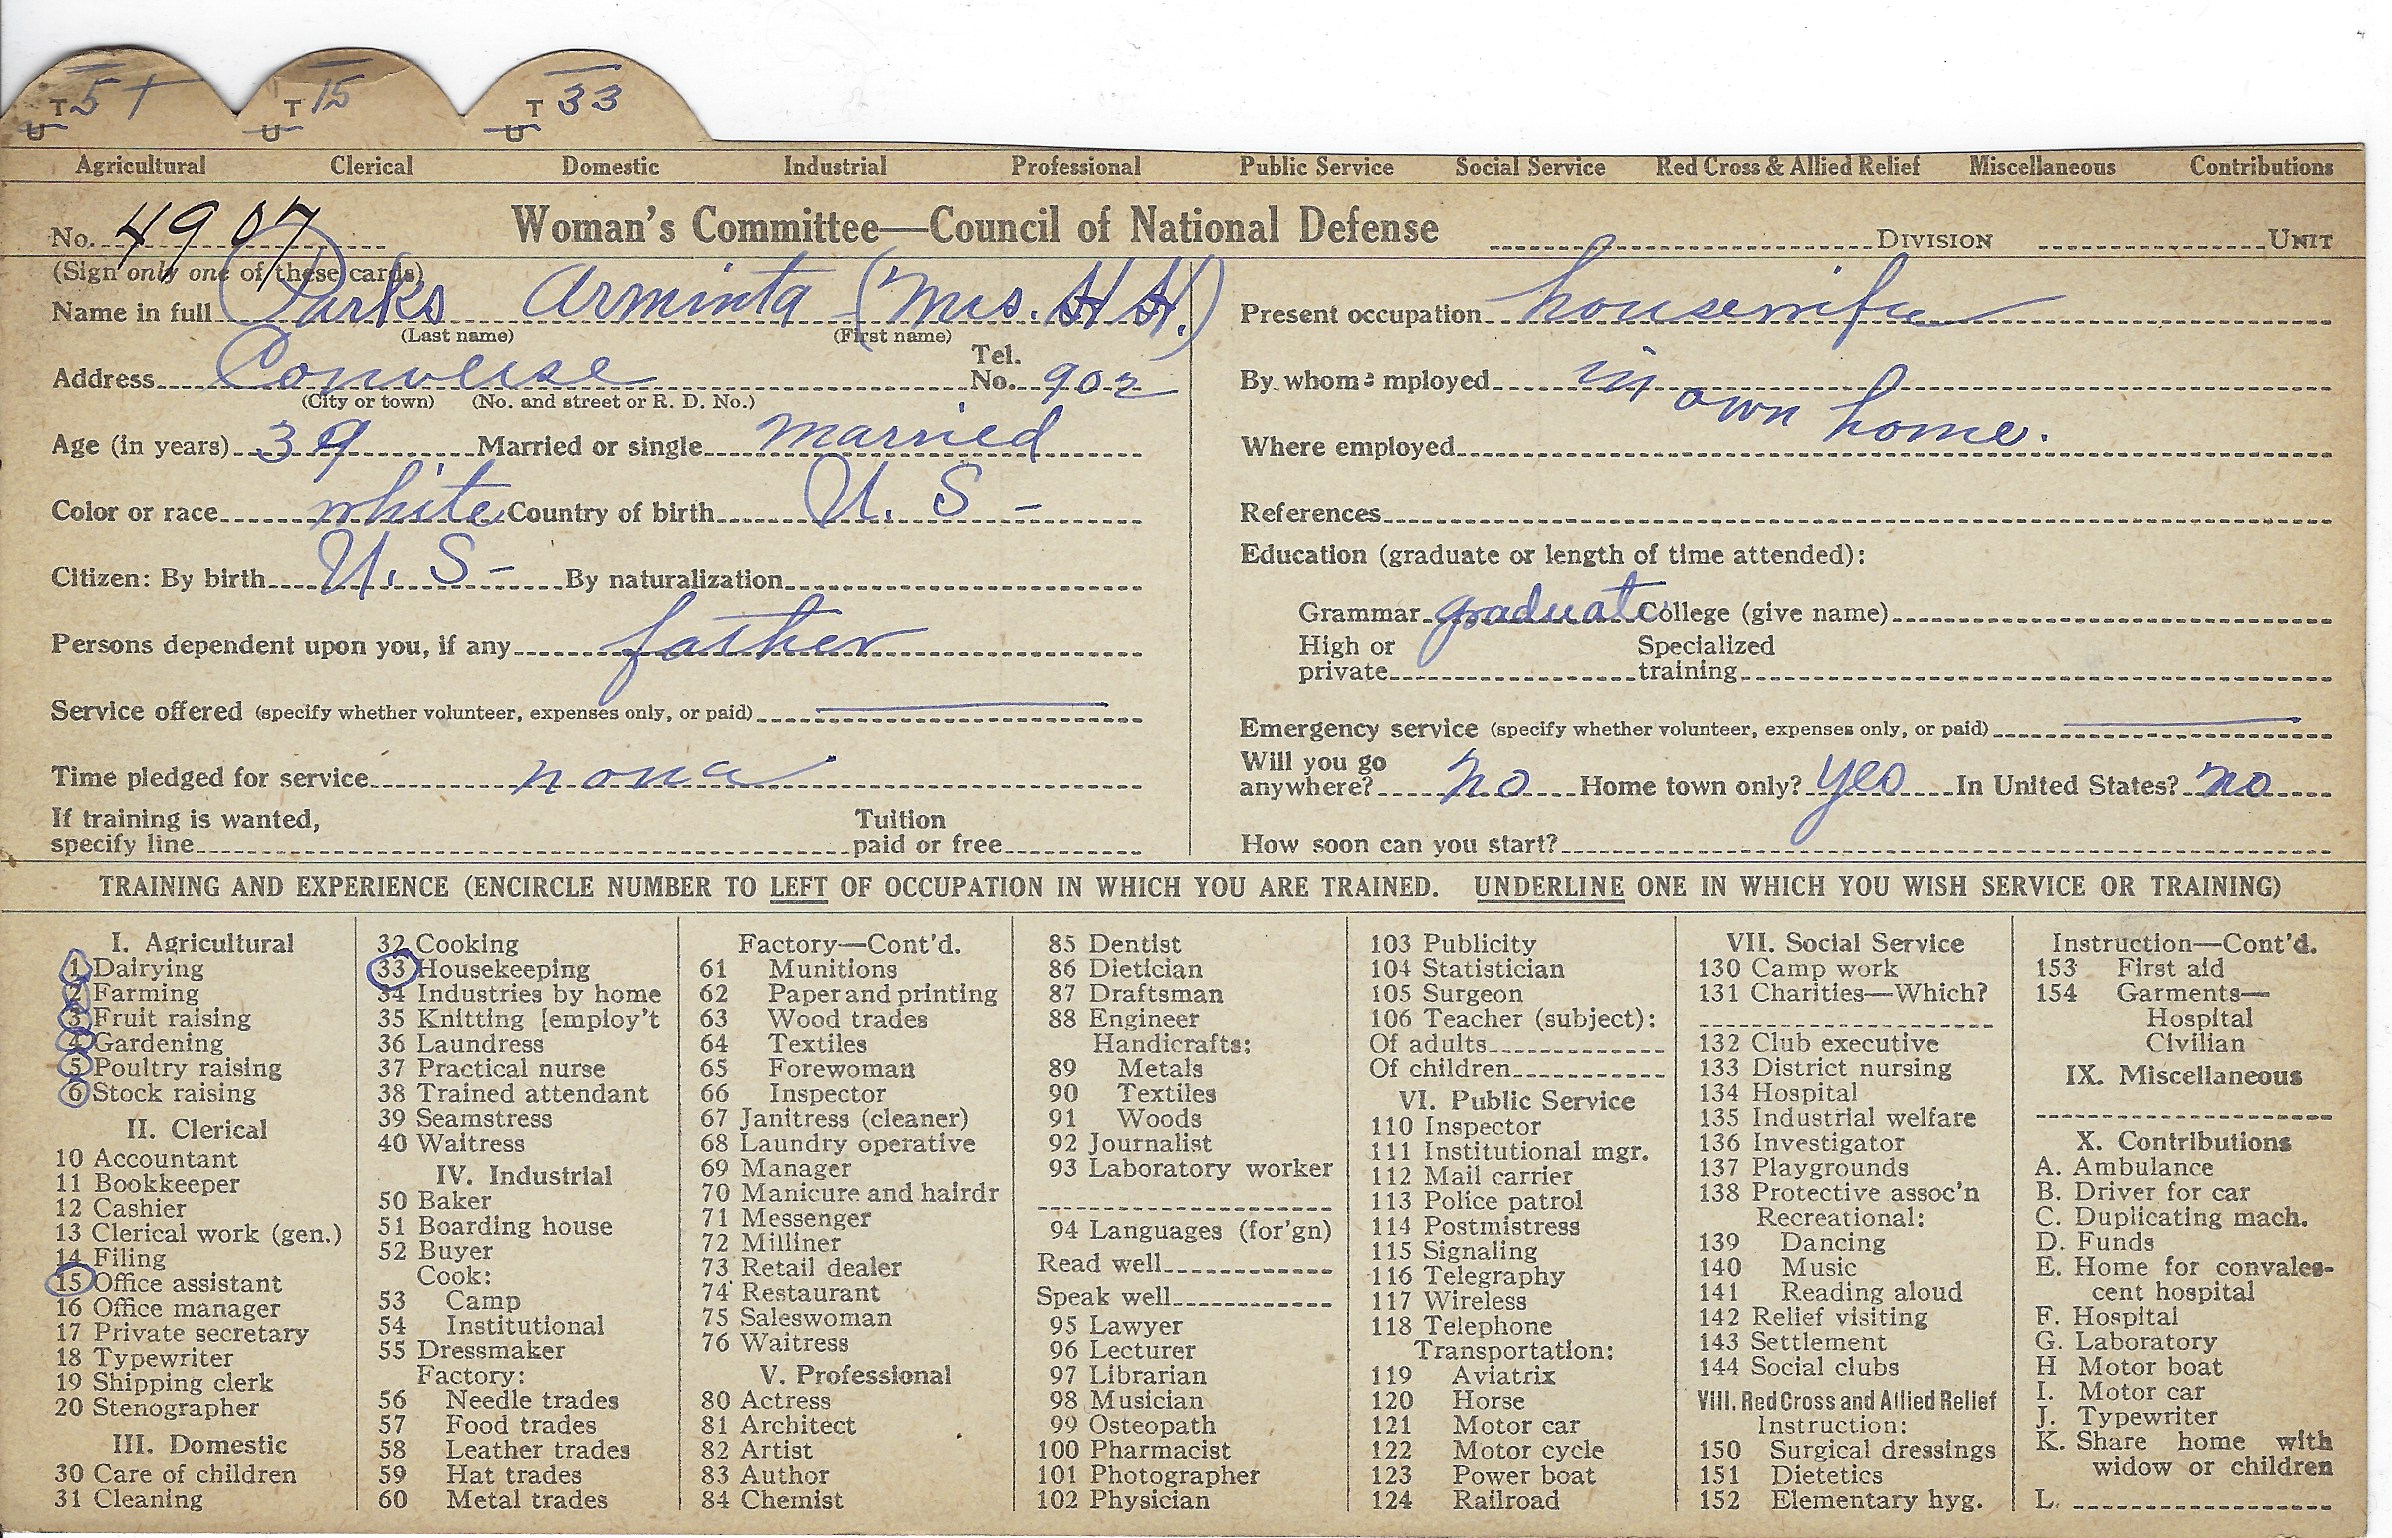 T 5 + T 15 T 33
U U U
Agricultural Clerical Domestic Industrial Professional Public Service Social Service Red Cross & Allied Relief Miscellaneous Contributions
No. 4907 Woman's Committee—Council of National Defense DIVISION UNIT
(Sign only one of these cards)
Name in full Parks Arminta (Mrs. H H.)
(Last name) (First name)
Address Converse Tel. No. 902
(City or town) (No. and street or R. D. No.)
Age (in years) 39 Married or single married
Color or race white Country of birth U. S -
Citizen: By birth U. S - By naturalization
Persons dependent upon you, if any father
Service offered (specify whether volunteer, expenses only, or paid)
Time pledged for service none
If training is wanted,
specify line
Tuition
paid or free
Present occupation housewife
By whom employed in own home.
Where employed
References
Education (graduate or length of time attended):
Grammar graduate College (give name)
High or
private
Specialized
training
Emergency service (specify whether volunteer, expenses only, or paid)
Will you go
anywhere? no Home town only? yes In United States? no
How soon can you start?
TRAINING AND EXPERIENCE (ENCIRCLE NUMBER TO LEFT OF OCCUPATION IN WHICH YOU ARE TRAINED. UNDERLINE ONE IN WHICH YOU WISH SERVICE OR TRAINING)
I. Agricultural
1 Dairying
2 Farming
3 Fruit raising
4 Gardening
5 Poultry raising
6 Stock raising
II. Clerical
10 Accountant
11 Bookkeeper
12 Cashier
13 Clerical work (gen.)
14 Filing
15 Office assistant
16 Office manager
17 Private secretary
18 Typewriter
19 Shipping clerk
20 Stenographer
III. Domestic
30 Care of children
31 Cleaning
32 Cooking
33 Housekeeping
34 Industries by home
35 Knitting [employ't
36 Laundress
37 Practical nurse
38 Trained attendant
39 Seamstress
40 Waitress
IV. Industrial
50 Baker
51 Boarding house
52 Buyer
Cook:
53 Camp
54 Institutional
55 Dressmaker
Factory:
56 Needle trades
57 Food trades
58 Leather trades
59 Hat trades
60 Metal trades
Factory—Cont'd.
61 Munitions
62 Paper and printing
63 Wood trades
64 Textiles
65 Forewoman
66 Inspector
67 Janitress (cleaner)
68 Laundry operative
69 Manager
70 Manicure and hairdr
71 Messenger
72 Milliner
73 Retail dealer
74 Restaurant
75 Saleswoman
76 Waitress
V. Professional
80 Actress
81 Architect
82 Artist
83 Author
84 Chemist
85 Dentist
86 Dietician
87 Draftsman
88 Engineer
Handicrafts:
89 Metals
90 Textiles
91 Woods
92 Journalist
93 Laboratory worker
94 Languages (for'gn)
Read well
Speak well
95 Lawyer
96 Lecturer
97 Librarian
98 Musician
99 Osteopath
100 Pharmacist
101 Photographer
102 Physician
103 Publicity
104 Statistician
105 Surgeon
106 Teacher (subject):
Of adults
Of children
VI. Public Service
110 Inspector
111 Institutional mgr.
112 Mail carrier
113 Police patrol
114 Postmistress
115 Signaling
116 Telegraphy
117 Wireless
118 Telephone
Transportation:
119 Aviatrix
120 Horse
121 Motor car
122 Motor cycle
123 Power boat
124 Railroad
VII. Social Service
130 Camp work
131 Charities—Which?
132 Club executive
133 District nursing
134 Hospital
135 Industrial welfare
136 Investigator
137 Playgrounds
138 Protective assoc'n
Recreational:
139 Dancing
140 Music
141 Reading aloud
142 Relief visiting
143 Settlement
144 Social clubs
VIII. Red Cross and Allied Relief
Instruction:
150 Surgical dressings
151 Dietetics
152 Elementary hyg.
Instruction—Cont'd.
153 First aid
154 Garments—
Hospital
Civilian
IX. Miscellaneous
X. Contributions
A. Ambulance
B. Driver for car
C. Duplicating mach.
D. Funds
E. Home for convales-
cent hospital
F. Hospital
G. Laboratory
H Motor boat
I. Motor car
J. Typewriter
K. Share home with
widow or children
L.